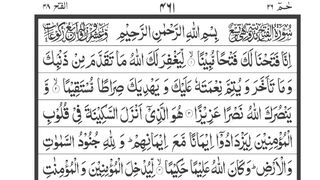 حٰمٓ ٢٦ ٤٦١ الفتح ٤٨
بِسْمِ اللهِ الرَّحْمٰنِ الرَّحِيْمِ
اِنَّا فَتَحْنَا لَكَ فَتْحًا مُّبِيْنًا ۙ لِّيَغْفِرَ لَكَ اللهُ مَا تَقَدَّمَ مِنْ ذَنْۢبِكَ
وَمَا تَاَخَّرَ وَيُتِمَّ نِعْمَتَهٗ عَلَيْكَ وَيَهْدِيَكَ صِرَاطًا مُّسْتَقِيْمًا ۙ وَّ
يَنْصُرَكَ اللهُ نَصْرًا عَزِيْزًا ۝ هُوَ الَّذِيْۤ اَنْزَلَ السَّكِيْنَةَ فِيْ قُلُوْبِ
الْمُؤْمِنِيْنَ لِيَزْدَادُوْۤا اِيْمَانًا مَّعَ اِيْمَانِهِمْ ؕ وَلِلّٰهِ جُنُوْدُ السَّمٰوٰتِ
وَالْاَرْضِ ؕ وَكَانَ اللهُ عَلِيْمًا حَكِيْمًا ۙ لِّيُدْخِلَ الْمُؤْمِنِيْنَ وَالْمُؤْمِنٰتِ